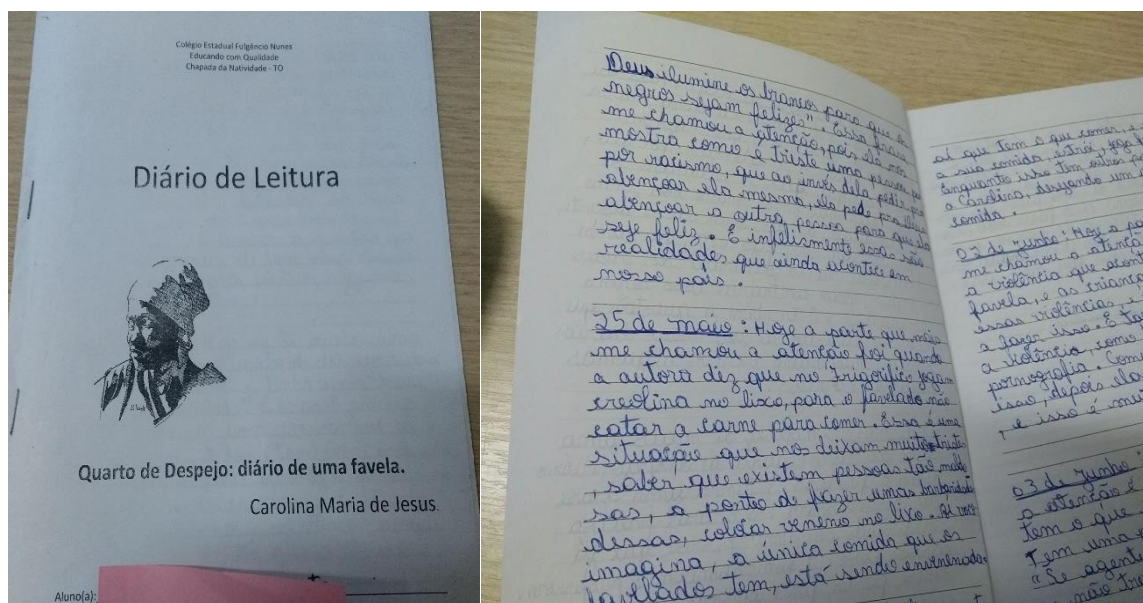 Colégio Estadual Fulgêncio Nunes
Educando com Qualidade
Chapada da Natividade - TO
Diário de Leitura
Quarto de Despejo: diário de uma favela.
Carolina Maria de Jesus.
Aluno(a):
Deus ilumine os brancos para que os
negros sejam felizes". Essa frase
me chamou a atenção, pois ela nos
mostra como é triste uma pessoa
por racismo, que ao invés dela pedir pra
abençoar ela mesma, ela pede pra
abençoar a outra pessoa para que ela
seje feliz. E infelizmente essas são
realidades que ainda acontice em
nosso país.
25 de maio: Hoje a parte que mais
me chamou a atenção foi quando
a autora diz que no Frigorífico jogam
creolina no lixo, para o favelado não
catar a carne para comer. Essa é uma
situação que nos deixam muito tristes
, saber que existem pessoas tão maldo
sas, a ponto de fazer umas barbaridades
dessas, colocar veneno no lixo. Aí você
imagina, a única comida que os
favelados tem, está sendo envenenada.
aí que tem o que comer, e
a sua comida, estrói, joga
Enquanto isso tem outros
a Carolina, desejando um
comida.
02 de Junho: Hoje a par
me chamou a atençã
a violência que acont
favela, e as criança
essas violências, e
a fazer isso. E ta
a violência, como
pornografia. Com
isso, depois ela
, e isso é mui
03 de Junho:
a atenção é
tem o que
Tem uma
"Se agente
não tra